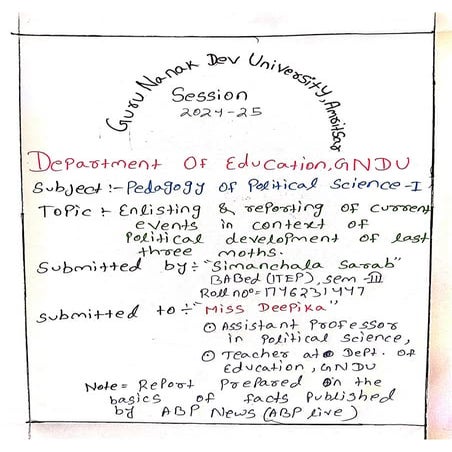 Guru Nanak Dev University, Amritsar
Session
2024-25
Department Of Education, GNDU
Subject :- Pedagogy of Political Science-I
Topic :- Enlisting & reporting of current
events in context of
Political development of last
three moths.
Submitted by :- "Simanchala Sarab"
BABed (ITEP), Sem - III
Roll no = 17462311447
Submitted to :- "Miss Deepika"
Assistant Professor
in Political Science,
Teacher at Dept. of
Education, GNDU
Note = Report Prepared on the
basics of facts Published
by ABP News (ABP live)